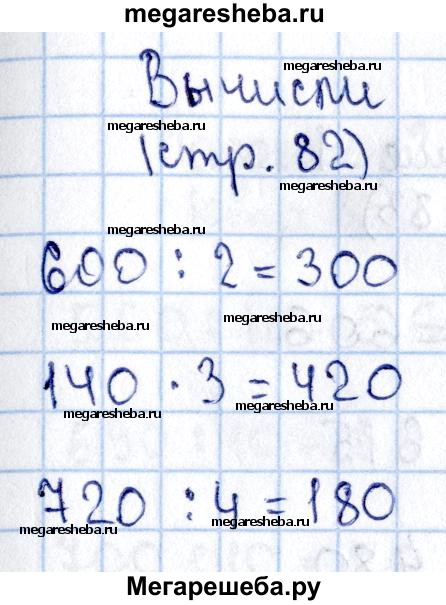 megaresheba.ru
megaresheba.ru
Вычисли
megaresheba.ru
megaresheba.ru
(стр. 82)
megaresheba.ru
megaresheba.ru
600 : 2 = 300
megaresheba.ru
megaresheba.ru
140 · 3 = 420
megaresheba.ru
megaresheba.ru
720 : 4 = 180
megaresheba.ru
megaresheba.ru
Мегарешеба.ру